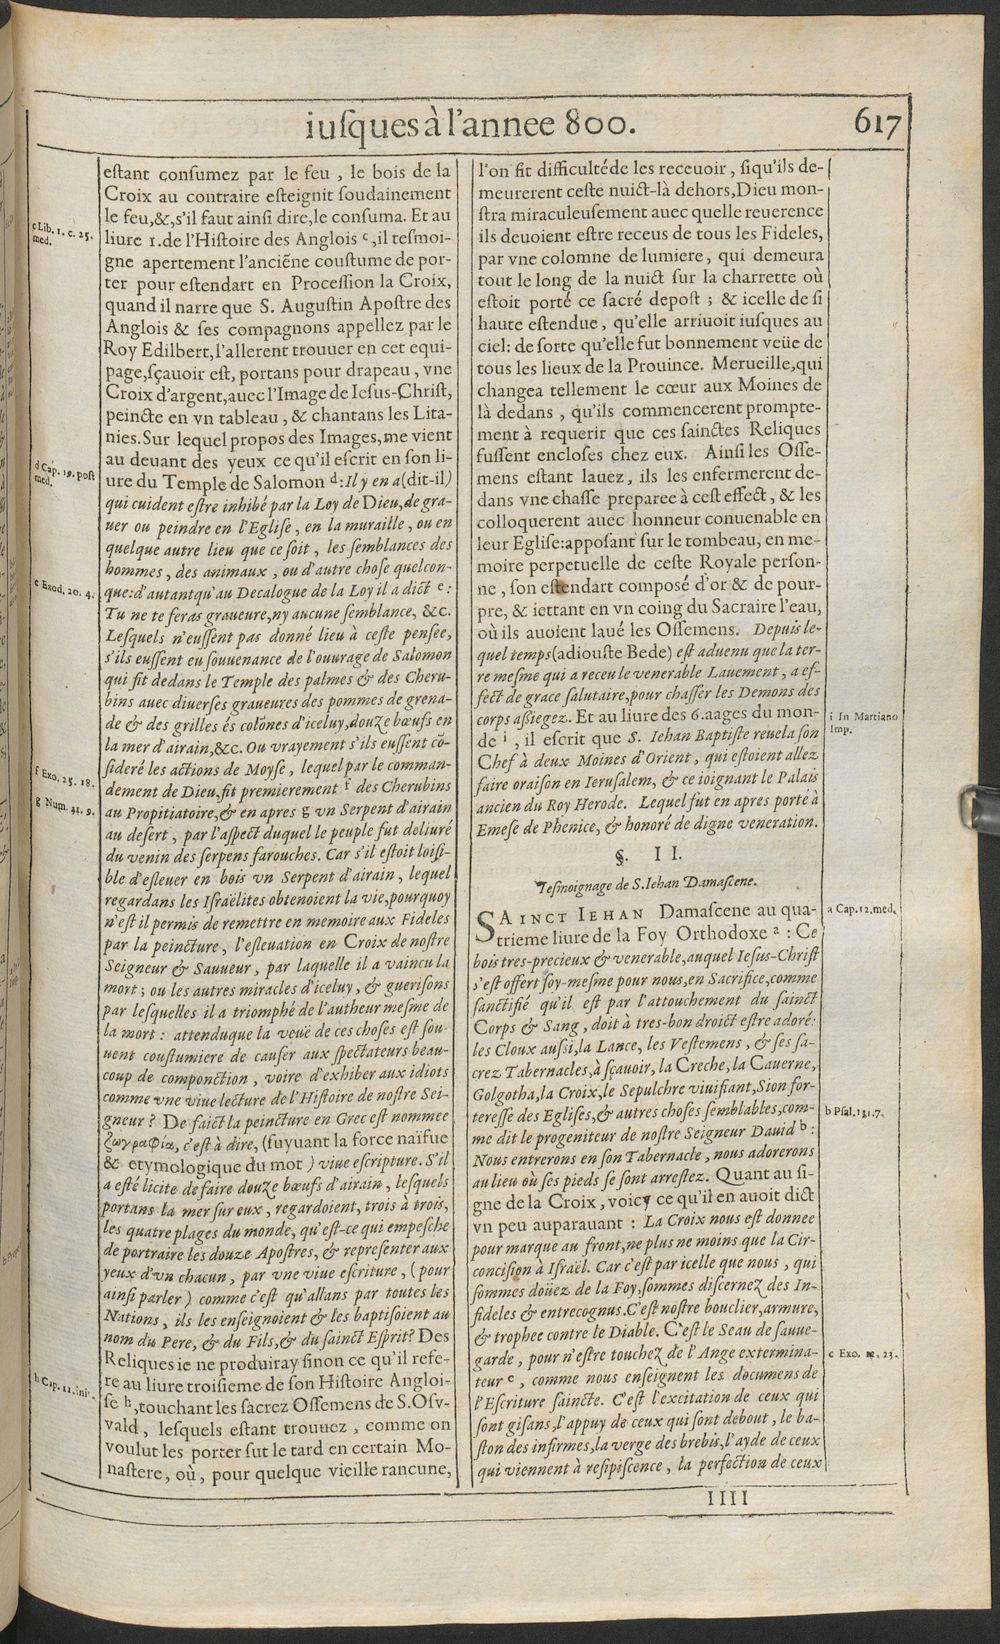 iusques à l'annee 800.
617
estant consumez par le feu, le bois de la
Croix au contraire esteignit soudainement
le feu, &, s'il faut ainsi dire, le consuma. Et au
liure 1. de l'Histoire des Anglois c, il tesmoi-
gne apertement l'anciẽne coustume de por-
ter pour estendart en Procession la Croix,
quand il narre que S. Augustin Apostre des
Anglois & ses compagnons appellez par le
Roy Edilbert, l'allerent trouuer en cet equi-
page, sçauoir est, portans pour drapeau, vne
Croix d'argent, auec l'Image de Iesus-Christ,
peincte en vn tableau, & chantans les Lita-
nies. Sur lequel propos des Images, me vient
au deuant des yeux ce qu'il escrit en son li-
ure du Temple de Salomon d: Il y en a (dit-il)
qui cuident estre inhibé par la Loy de Dieu, de gra-
uer ou peindre en l'Eglise, en la muraille, ou en
quelque autre lieu que ce soit, les semblances des
hommes, des animaux, ou d'autre chose quelcon-
que: d'autant qu'au Decalogue de la Loy il a dict e:
Tu ne te feras graueure, ny aucune semblance, &c.
Lesquels n'eussent pas donné lieu à ceste pensee,
s'ils eussent eu souuenance de l'ouurage de Salomon
qui fit dedans le Temple des palmes & des Cheru-
bins auec diuerses graueures des pommes de grena-
de & des grilles és colõnes d'iceluy, douze bœufs en
la mer d'airain, &c. Ou vrayement s'ils eussent cõ-
sideré les actions de Moyse, lequel par le comman-
dement de Dieu, fit premierement f des Cherubins
au Propitiatoire, & en apres g vn Serpent d'airain
au desert, par l'aspect duquel le peuple fut deliuré
du venin des serpens farouches. Car s'il estoit loisi-
ble d'esleuer en bois vn Serpent d'airain, lequel
regardans les Israëlites obtenoient la vie, pourquoy
n'est il permis de remettre en memoire aux Fideles
par la peincture, l'esleuation en Croix de nostre
Seigneur & Sauueur, par laquelle il a vaincu la
mort; ou les autres miracles d'iceluy, & guerisons
par lesquelles il a triomphé de l'autheur mesme de
la mort: attenduque la veuë de ces choses est sou-
uent coustumiere de causer aux spectateurs beau-
coup de componction, voire d'exhiber aux idiots
comme vne viue lecture de l'Histoire de nostre Sei-
gneur? De faict la peincture en Grec est nommee
ζωγραφία, c'est à dire, (suyuant la force naïfue
& etymologique du mot) viue escripture. S'il
a esté licite de faire douze bœufs d'airain, lesquels
portans la mer sur eux, regardoient, trois à trois,
les quatre plages du monde, qu'est-ce qui empesche
de portraire les douze Apostres, & representer aux
yeux d'vn chacun, par vne viue escriture, (pour
ainsi parler) comme c'est qu'allans par toutes les
Nations, ils les enseignoient & les baptisoient au
nom du Pere, & du Fils, & du sainct Esprit? Des
Reliques ie ne produiray sinon ce qu'il refe-
re au liure troisieme de son Histoire Angloi-
se h, touchant les sacrez Ossemens de S. Osv-
vald, lesquels estant trouuez, comme on
voulut les porter sut le tard en certain Mo-
nastere, où, pour quelque vieille rancune,
c Lib. 1. c. 25.
med.
d Cap. 19. post
med.
e Exod. 20. 4.
f Exo. 25. 18.
g Num. 21. 9.
h Cap. 11. ini.
l'on fit difficulté de les receuoir, siqu'ils de-
meurerent ceste nuict-là dehors, Dieu mon-
stra miraculeusement auec quelle reuerence
ils deuoient estre receus de tous les Fideles,
par vne colomne de lumiere, qui demeura
tout le long de la nuict sur la charrette où
estoit porté ce sacré depost; & icelle de si
haute estendue, qu'elle arriuoit iusques au
ciel: de sorte qu'elle fut bonnement veüe de
tous les lieux de la Prouince. Merueille, qui
changea tellement le cœur aux Moines de
là dedans, qu'ils commencerent prompte-
ment à requerir que ces sainctes Reliques
fussent encloses chez eux. Ainsi les Osse-
mens estant lauez, ils les enfermerent de-
dans vne chasse preparee à cest effect, & les
colloquerent auec honneur conuenable en
leur Eglise: apposant sur le tombeau, en me-
moire perpetuelle de ceste Royale person-
ne, son estendart composé d'or & de pour-
pre, & iettant en vn coing du Sacraire l'eau,
où ils auoient laué les Ossemens. Depuis le-
quel temps (adiouste Bede) est aduenu que la ter-
re mesme qui a receu le venerable Lauement, a ef-
fect de grace salutaire, pour chasser les Demons des
corps assiegez. Et au liure des 6. aages du mon-
de i, il escrit que S. Iehan Baptiste reuela son
Chef à deux Moines d'Orient, qui estoient allez
faire oraison en Ierusalem, & ce ioignant le Palais
ancien du Roy Herode. Lequel fut en apres porté à
Emese de Phenice, & honoré de digne veneration.
§. II.
Tesmoignage de S. Iehan Damascene.
SAINCT IEHAN Damascene au qua-
trieme liure de la Foy Orthodoxe a: Ce
bois tres-precieux & venerable, auquel Iesus-Christ
s'est offert soy-mesme pour nous, en Sacrifice, comme
sanctifié qu'il est par l'attouchement du sainct
Corps & Sang, doit à tres-bon droict estre adoré:
les Cloux aussi, la Lance, les Vestemens, & ses sa-
crez Tabernacles, à sçauoir, la Creche, la Cauerne,
Golgotha, la Croix, le Sepulchre viuifiant, Sion for-
teresse des Eglises, & autres choses semblables, com-
me dit le progeniteur de nostre Seigneur Dauid b:
Nous entrerons en son Tabernacle, nous adorerons
au lieu où ses pieds se sont arrestez. Quant au si-
gne de la Croix, voicy ce qu'il en auoit dict
vn peu auparauant: La Croix nous est donnee
pour marque au front, ne plus ne moins que la Cir-
concision à Israël. Car c'est par icelle que nous, qui
sommes doüez de la Foy, sommes discernez des In-
fideles & entrecognus. C'est nostre bouclier, armure,
& trophee contre le Diable. C'est le Seau de sauue-
garde, pour n'estre touchez de l'Ange extermina-
teur c, comme nous enseignent les documens de
l'Escriture saincte. C'est l'excitation de ceux qui
sont gisans, l'appuy de ceux qui sont debout, le ba-
ston des infirmes, la verge des brebis, l'ayde de ceux
qui viennent à resipiscence, la perfection de ceux
i In Martiano
Imp.
a Cap. 12. med.
b Psal. 131. 7.
c Exo. 12. 23.
IIII